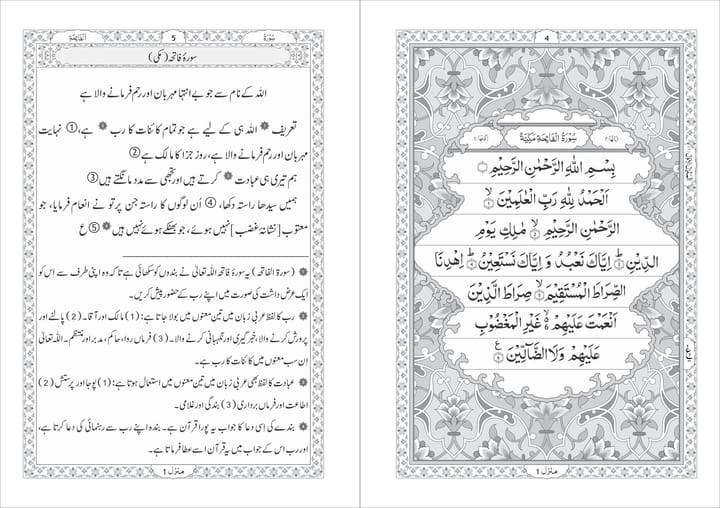 4
سُوْرَۃُ الْفَاتِحَةِ مَكِّيَّةٌ
بِسْمِ اللّٰهِ الرَّحْمٰنِ الرَّحِيْمِ
اَلْحَمْدُ لِلّٰهِ رَبِّ الْعٰلَمِيْنَ
الرَّحْمٰنِ الرَّحِيْمِ مٰلِكِ يَوْمِ
الدِّيْنِ اِيَّاكَ نَعْبُدُ وَ اِيَّاكَ نَسْتَعِيْنُ اِهْدِنَا
الصِّرَاطَ الْمُسْتَقِيْمَ صِرَاطَ الَّذِيْنَ
اَنْعَمْتَ عَلَيْهِمْ غَيْرِ الْمَغْضُوْبِ
عَلَيْهِمْ وَلَا الضَّآلِّيْنَ
منزل 1
سُوْرَۃ 5 اَلْفَاتِحَة
سورۂ فاتحہ (مکی)
اللہ کے نام سے جو بے انتہا مہربان اور رحم فرمانے والا ہے
تعریف * اللہ ہی کے لیے ہے جو تمام کائنات کا رب * ہے، ① نہایت
مہربان اور رحم فرمانے والا ہے، روز جزا کا مالک ہے ②
ہم تیری ہی عبادت * کرتے ہیں اور تجھی سے مدد مانگتے ہیں ③
ہمیں سیدھا راستہ دکھا، ④ اُن لوگوں کا راستہ جن پر تو نے انعام فرمایا، جو
معتوب [نشانۂ غضب] نہیں ہوئے، جو بھٹکے ہوئے نہیں ہیں * ⑤ ع
* (سورۃ الفاتحہ) یہ سورۂ فاتحہ اللہ تعالیٰ نے بندوں کو سکھائی ہے تاکہ وہ اپنی طرف سے اس کو
ایک عرض داشت کی صورت میں اپنے رب کے حضور پیش کریں۔
* رب کا لفظ عربی زبان میں تین معنوں میں بولا جاتا ہے: (1) مالک اور آقا۔ (2) پالنے اور
پرورش کرنے والا، خبر گیری اور نگہبانی کرنے والا۔ (3) فرماں روا، حاکم، مدبر اور منتظم۔ اللہ تعالیٰ
اِن سب معنوں میں کائنات کا رب ہے۔
* عبادت کا لفظ بھی عربی زبان میں تین معنوں میں استعمال ہوتا ہے: (1) پوجا اور پرستش (2)
اطاعت اور فرماں برداری (3) بندگی اور غلامی۔
* بندے کی اسی دعا کا جواب یہ پورا قرآن ہے۔ بندہ اپنے رب سے رہنمائی کی دعا کرتا ہے،
اور رب اس کے جواب میں یہ قرآن اسے عطا فرماتا ہے۔
منزل 1